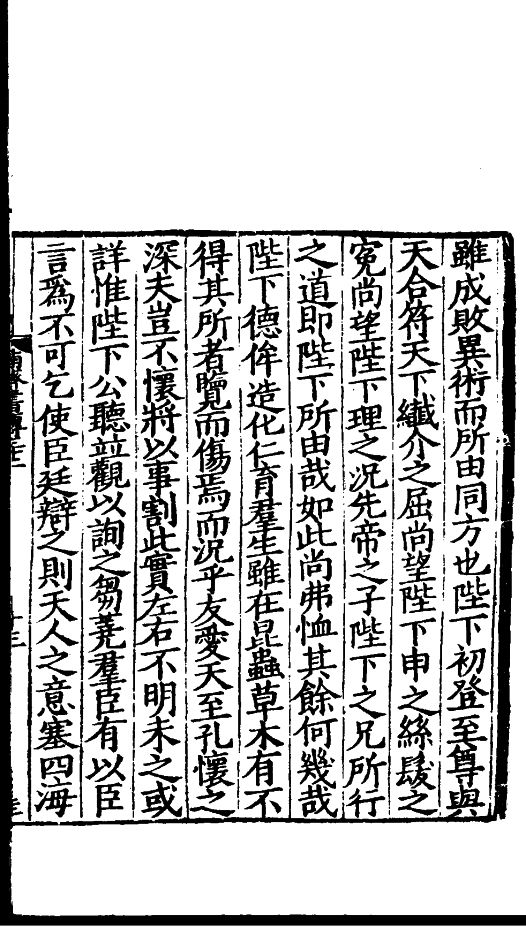 雖成敗異術而所由同方也陛下初登至尊與
天合符天下纎介之屈尚望陛下申之絲髮之
寃尚望陛下理之況先帝之子陛下之兄所行
之道即陛下所由哉如此尚弗恤其餘何幾哉
陛下德侔造化仁育羣生雖在昆蟲草木有不
得其所者覽而傷焉而況乎友愛天至孔懷之
深夫豈不懷將以事割此實左右不明未之或
詳惟陛下公聽並觀以詢之芻蕘羣臣有以臣
言爲不可乞使臣廷辯之則天人之意塞四海